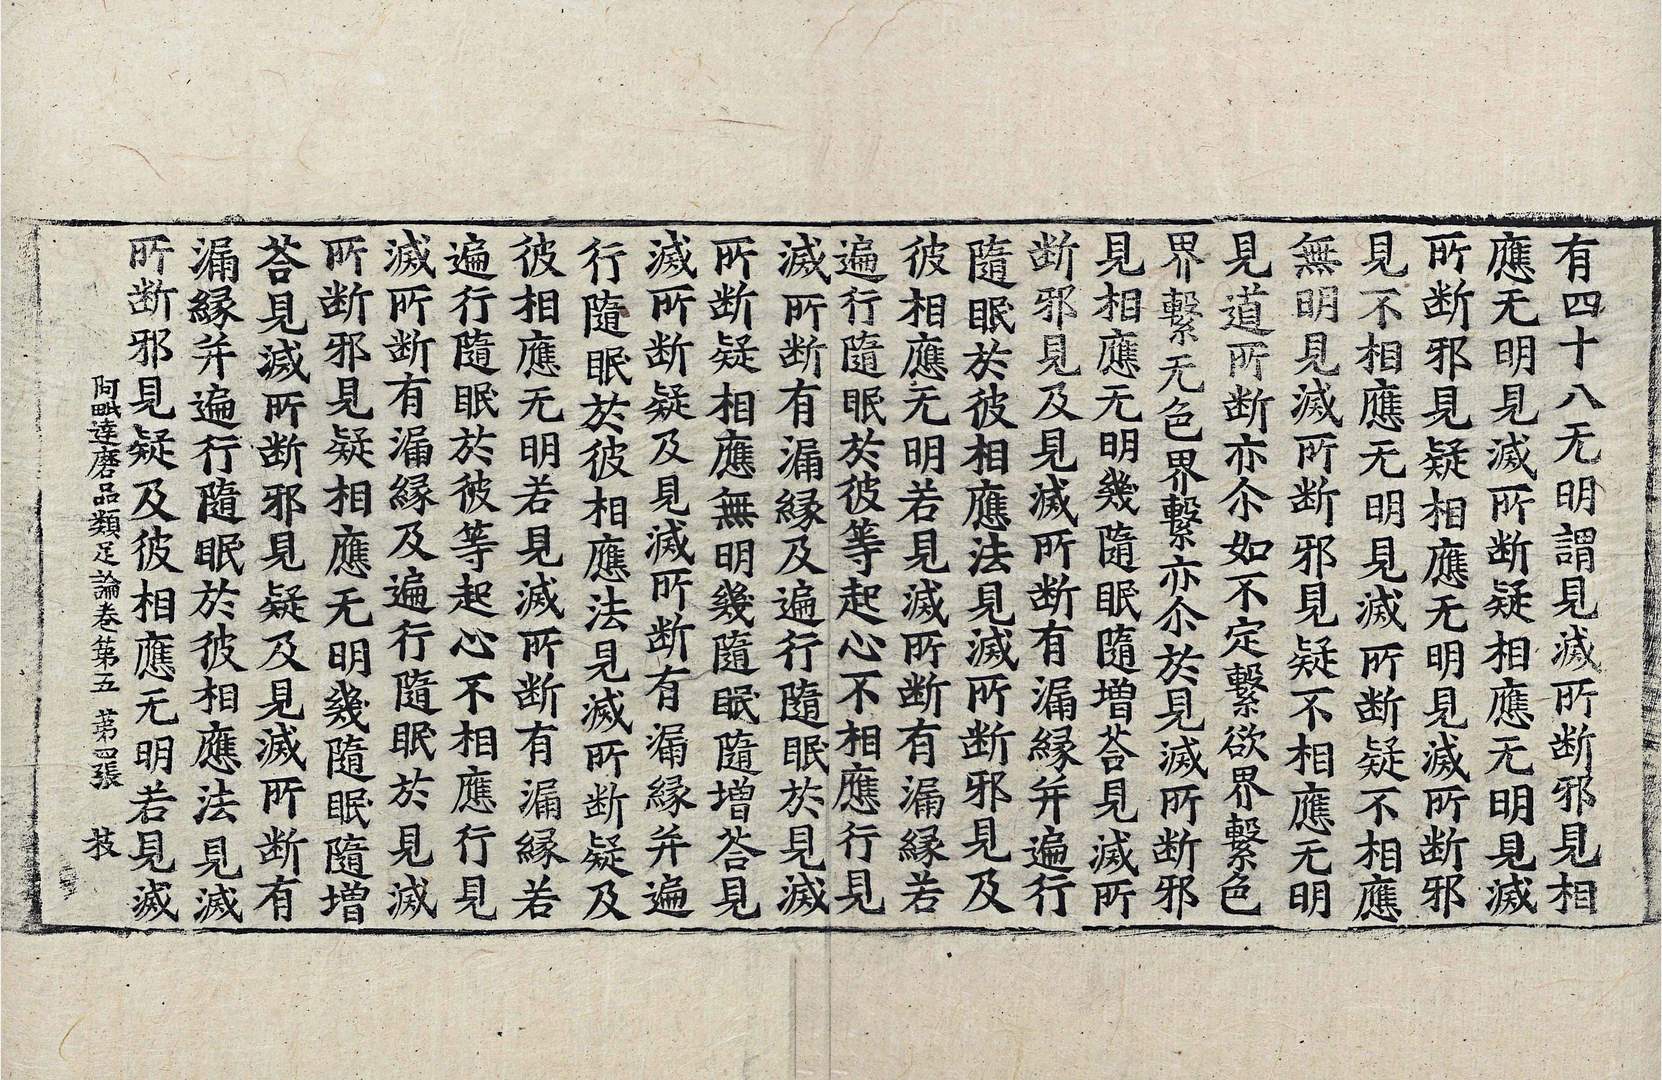 有四十八无明謂見滅所断邪見相
應无明見滅所断疑相應无明見滅
所断邪見疑相應无明見滅所断邪
見不相應无明見滅所断疑不相應
無明見滅所断邪見疑不相應无明
見道所断亦尒如不定繫欲界繫色
界繫无色界繫亦尒於見滅所断邪
見相應无明幾隨眠隨増荅見滅所
断邪見及見滅所断有漏縁并遍行
隨眠於彼相應法見滅所断邪見及
彼相應无明若見滅所断有漏縁若
遍行隨眠於彼等起心不相應行見
滅所断有漏縁及遍行隨眠於見滅
所断疑相應無明幾隨眠隨増荅見
滅所断疑及見滅所断有漏縁并遍
行隨眠於彼相應法見滅所断疑及
彼相應无明若見滅所断有漏縁若
遍行隨眠於彼等起心不相應行見
滅所断有漏縁及遍行隨眠於見滅
所断邪見疑相應无明幾隨眠隨増
荅見滅所断邪見疑及見滅所断有
漏縁并遍行隨眠於彼相應法見滅
所断邪見疑及彼相應无明若見滅
阿毗達磨品類足論卷第五 第四張 枝